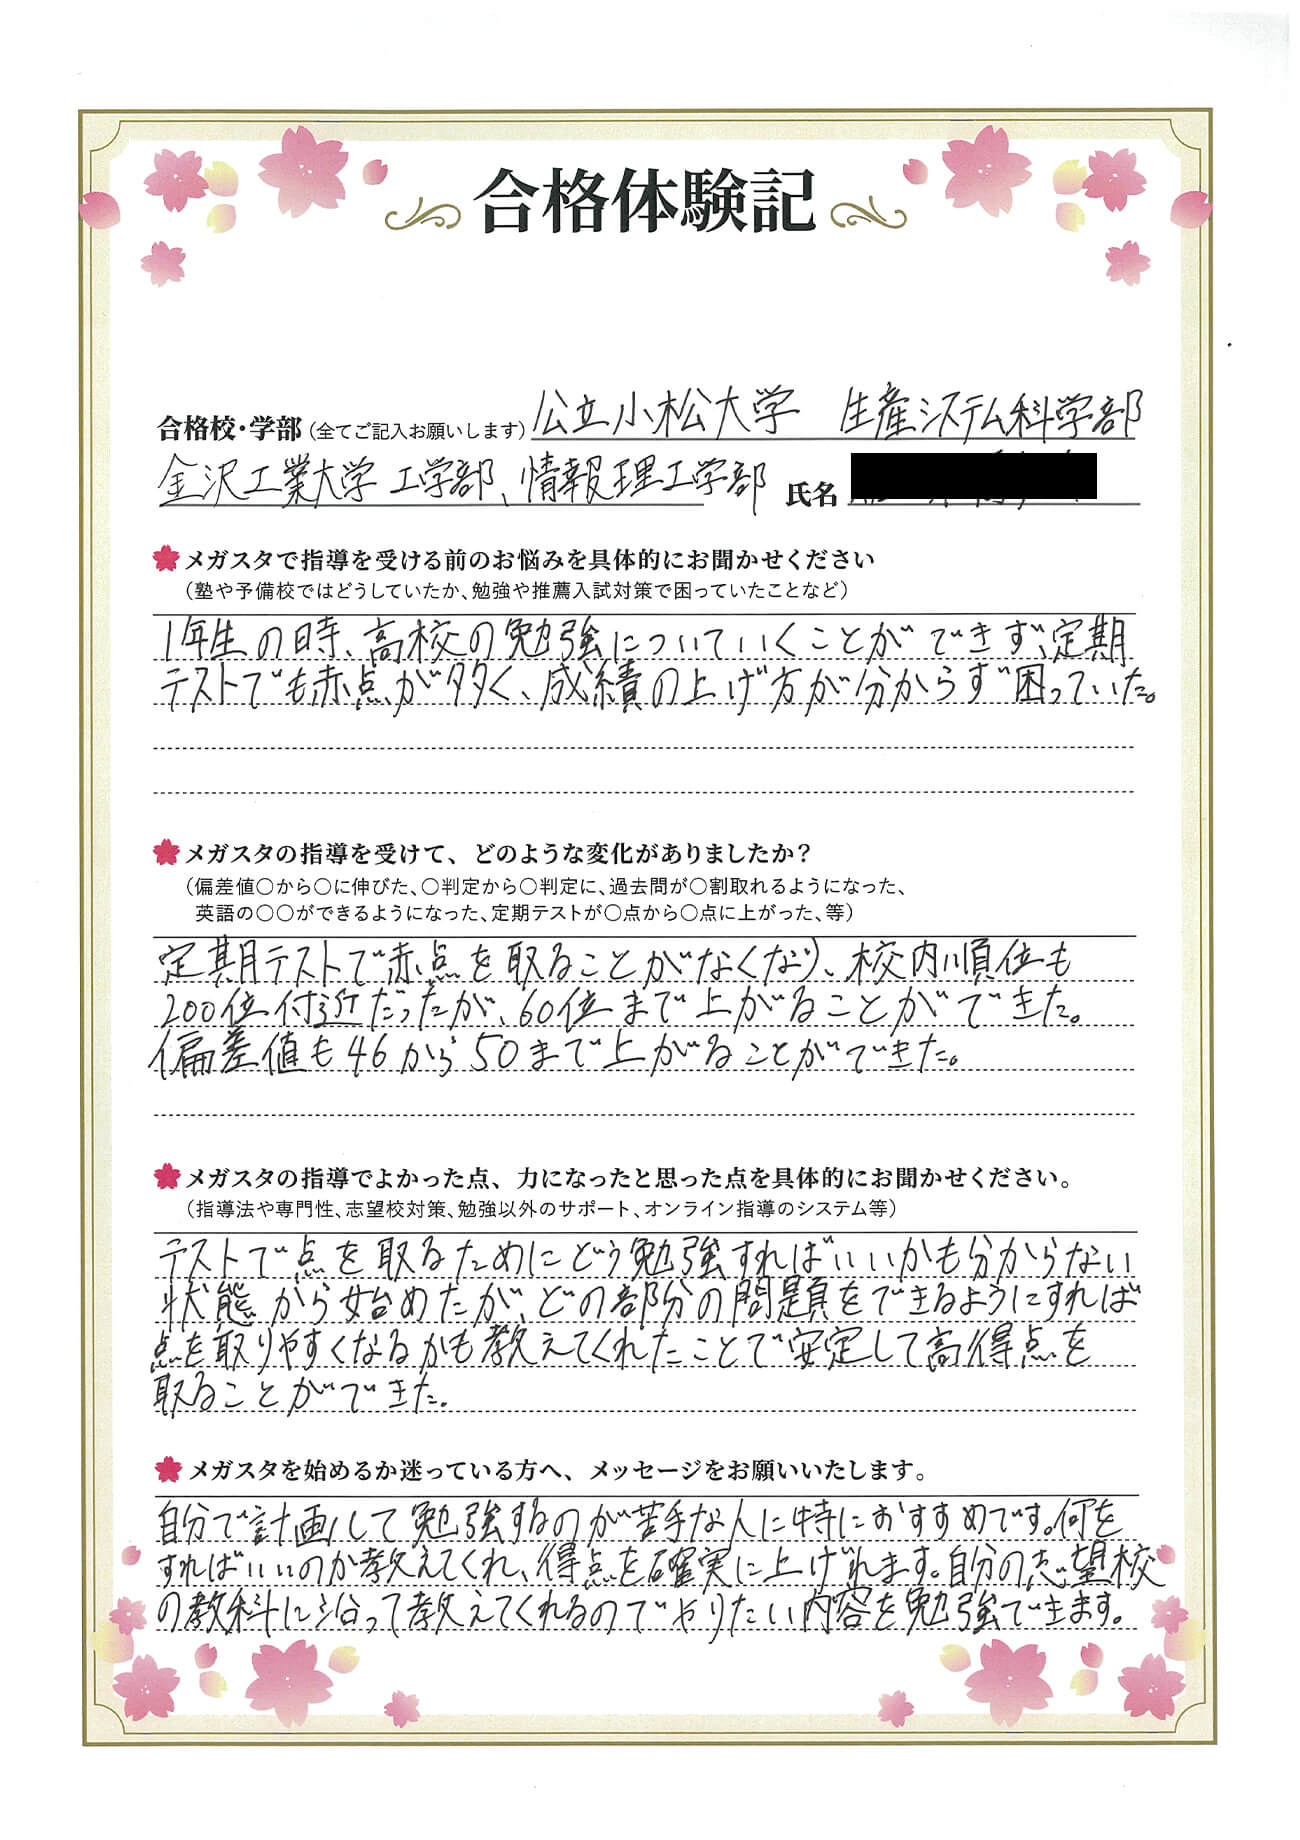 合格体験記
合格校・学部(全てご記入お願いします) 公立小松大学 生産システム科学部
金沢工業大学 工学部、情報理工学部 氏名
メガスタで指導を受ける前のお悩みを具体的にお聞かせください
(塾や予備校ではどうしていたか、勉強や推薦入試対策で困っていたことなど)
1年生の時、高校の勉強についていくことができず、定期
テストでも赤点が多く、成績の上げ方が分からず困っていた。
メガスタの指導を受けて、どのような変化がありましたか?
(偏差値〇から〇に伸びた、〇判定から〇判定に、過去問が〇割取れるようになった、
英語の〇〇ができるようになった、定期テストが〇点から〇点に上がった、等)
定期テストで赤点を取ることがなくなり、校内順位も
200位付近だったが、60位まで上がることができた。
偏差値も46から50まで上がることができた。
メガスタの指導でよかった点、力になったと思った点を具体的にお聞かせください。
(指導法や専門性、志望校対策、勉強以外のサポート、オンライン指導のシステム等)
テストで点を取るためにどう勉強すればいいかも分からない
状態から始めたが、どの部分の問題をできるようにすれば
点を取りやすくなるかも教えてくれたことで安定して高得点を
取ることができた。
メガスタを始めるか迷っている方へ、メッセージをお願いいたします。
自分で計画して勉強するのが苦手な人に特におすすめです。何を
すればいいのか教えてくれ、得点を確実に上げれます。自分の志望校
の教科に沿って教えてくれるのでやりたい内容を勉強できます。